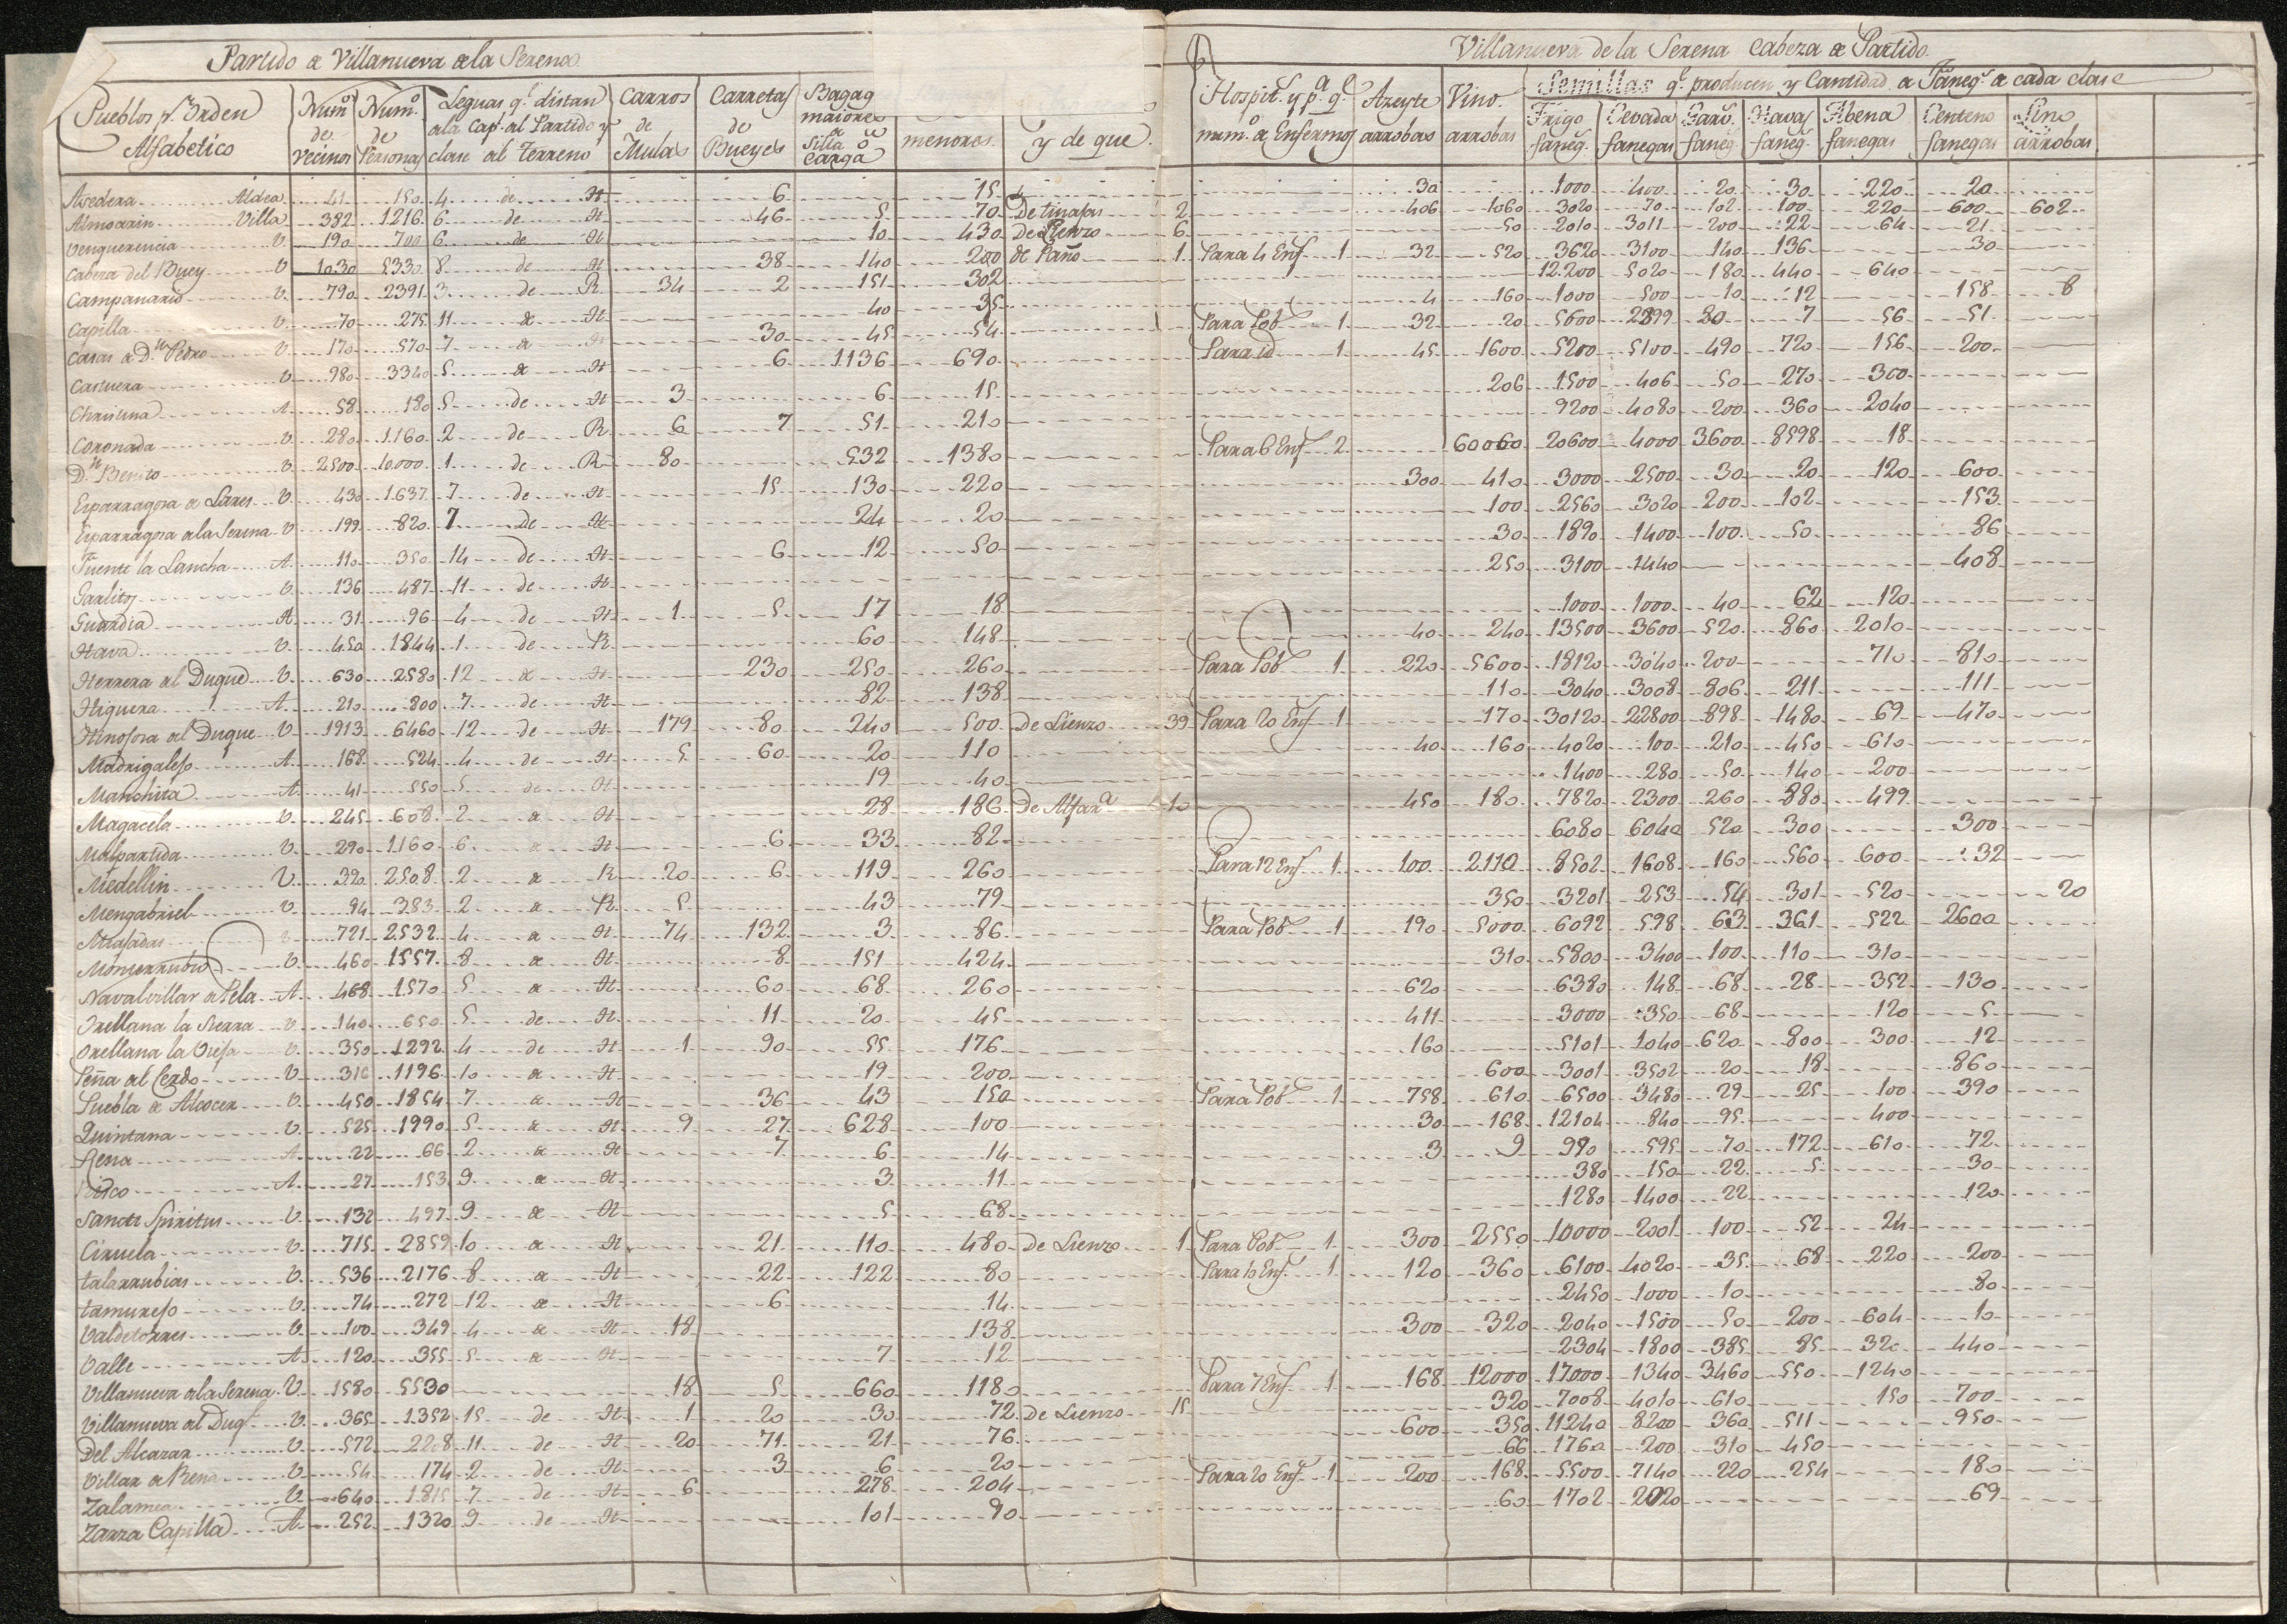 Partido de Villanueva de la Serena
Pueblos pr. Orden Alfabetico | Numo. de Vecinos | Numo. de Personas | Leguas qe. distan a la Capl. del Partido y clase del Terreno | Carros de Mulas | Carretas de Bueyes | Bagag maiores de silla ó carga | menores | y de que
Azedera Aldea 41 150 4 de H 6 15
Almorzin Villa 382 1216 6 de H 46 5 70 De tinajas 2
Venquerencia V 190 700 6 de H 10 430 de Lienzo 6
Cabeza del Buey V 1030 5330 8 de H 38 140 200 de Paño 1
Campanario V 790 2391 3 de R 34 2 151 302
Capilla V 70 275 11 de H 40 35
Casas de Dn. Pedro V 170 570 7 de H 30 45 54
Castuera V 980 3340 5 de H 6 1136 690
Christina A 58 180 5 de H 3 6 15
Coronada V 280 1160 2 de R 6 7 51 210
Dn. Benito V 2500 10000 1 de R 80 532 1380
Esparragosa de Lares V 430 1637 7 de H 15 130 220
Esparragosa de la Serena V 199 820 7 de H 24 20
Fuente la Lancha A 110 350 14 de H 6 12 50
Garlitos V 136 487 11 de H
Guardia A 31 96 4 de H 1 5 17 18
Hava V 450 1844 1 de R 60 148
Herrera del Duque V 630 2580 12 de H 230 250 260
Higuera A 210 800 7 de H 82 138
Hinojosa del Duque V 1913 6460 12 de H 179 80 240 500 de Lienzo 39
Madrigalejo A 168 524 4 de H 5 60 20 110
Manchita A 41 550 5 de H 19 40
Magacela V 245 608 2 de H 28 186 de Alfara 10
Malpartida V 290 1160 6 de H 6 33 82
Medellin V 320 2508 2 de R 20 6 119 260
Mengabriel V 94 383 2 de R 5 43 79
Miajadas V 721 2532 4 de H 74 132 3 86
Monterrubio V 460 1557 8 de H 8 151 424
Navalvillar de Pela A 468 1570 5 de H 60 68 260
Orellana la Sierra V 140 650 5 de H 11 20 45
Orellana la Vieja V 350 1292 4 de H 1 90 55 176
Peña del Cerdo V 310 1196 10 de H 19 200
Puebla de Alcocer V 450 1854 7 de H 36 43 150
Quintana V 525 1990 5 de H 9 27 628 100
Rena A 22 66 2 de H 7 6 14
Risco A 27 153 9 de H 3 11
Sancti Spiritus V 132 497 9 de H 5 68
Ciruela V 715 2859 10 de H 21 110 480 de Lienzo 1
talarrubias V 536 2176 8 de H 22 122 80
tamurejo V 74 272 12 de H 6 14
Valdetorres V 100 349 4 de H 18 138
Valle A 120 355 5 de H 7 12
Villanueva de la Serena V 1580 5530 18 5 660 1180
Villanueva del Duqe. V 365 1352 15 de H 1 20 30 72 de Lienzo 15
Del Alcarax V 572 2208 11 de H 20 71 21 76
Villar de Rena V 54 174 2 de H 3 6 20
Zalamea V 640 1815 7 de H 6 278 204
Zarza Capilla A 252 1320 9 de H 101 90
Villanueva de la Serena Cabeza de Partido
Hospits. y pa. qe. numo. de Enfermos | Azeyte arrobas | Vino arrobas | Semillas qe. producen y Cantidad de Fanegs. de cada clase
Trigo faneg. | Cevada fanegas | Garv. faneg. | Havas faneg. | Abena fanegas | Centeno fanegas | Lino arrobas
30 1000 400 20 30 220 20
406 1060 3020 70 102 100 220 600 602
50 2010 3011 200 22 64 21
Para 4 Enfs. 1 32 520 3620 3100 140 136 30
12.200 5020 180 440 640
4 160 1000 500 10 12 158 8
Para Pob. 1 32 20 5600 2899 80 7 56 51
Para id. 1 45 1600 5200 5100 490 720 156 200
206 1500 406 50 270 300
9200 4080 200 360 2040
Para 6 Enfs. 2 60060 20600 4000 3600 8598 18
300 410 3000 2500 30 20 120 600
100 2560 3020 200 102 153
30 1890 1400 100 50 86
250 3100 1440 408
1000 1000 40 62 120
40 240 13500 3600 520 860 2010
Para Pob. 1 220 5600 18120 3040 200 710 810
110 3040 3008 806 211 111
Para 20 Enfs. 1 170 30120 22800 898 1480 69 470
40 160 4020 100 210 450 610
1400 280 50 140 200
450 180 7820 2300 260 880 499
6080 6040 520 300 300
Para 12 Enfs. 1 100 2110 8502 1608 160 560 600 32
350 3201 253 54 301 520 20
Para Pob. 1 190 5000 6092 598 63 361 522 2600
310 5800 3400 100 110 310
620 6380 148 68 28 352 130
411 3000 350 68 120 5
160 5101 1040 620 800 300 12
600 3001 3502 20 18 860
Para Pob. 1 758 610 6500 3480 29 25 100 390
30 168 12104 840 95 400
3 9 990 595 70 172 610 72
380 150 22 5 30
1280 1400 22 120
Para Pob. 1 300 2550 10000 2001 100 52 24
Para 10 Enfs. 1 120 360 6100 4020 35 68 220 200
2450 1000 10 80
300 320 2040 1500 50 200 604 10
2304 1800 385 85 320 440
Para 7 Enfs. 1 168 12000 17000 1340 3460 550 1240
320 7008 4010 610 150 700
600 350 11240 8200 360 511 950
66 1760 200 310 450
Para 20 Enfs. 1 200 168 5500 7140 220 254 180
60 1702 2020 69